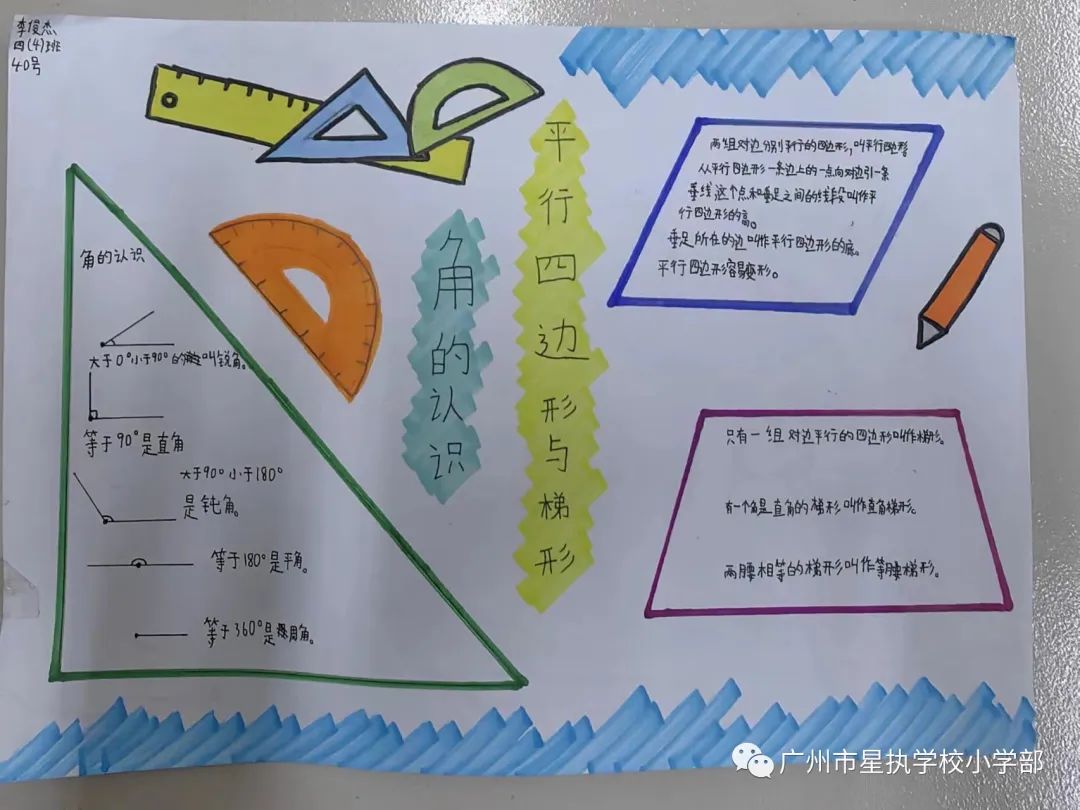 李俊杰
四(4)班
40号
角的认识
平行四边形与梯形
角的认识
大于0°小于90°的角叫锐角。
等于90°是直角
大于90°小于180°
是钝角。
等于180°是平角。
等于360°是周角。
两组对边分别平行的四边形,叫平行四边形
从平行四边形一条边上的一点向对边引一条
垂线这个点和垂足之间的线段叫作平
行四边形的高。
垂足所在的边叫作平行四边形的底。
平行四边形容易变形。
只有一组对边平行的四边形叫作梯形。
有一个角是直角的梯形叫作直角梯形。
两腰相等的梯形叫作等腰梯形。
广州市星执学校小学部